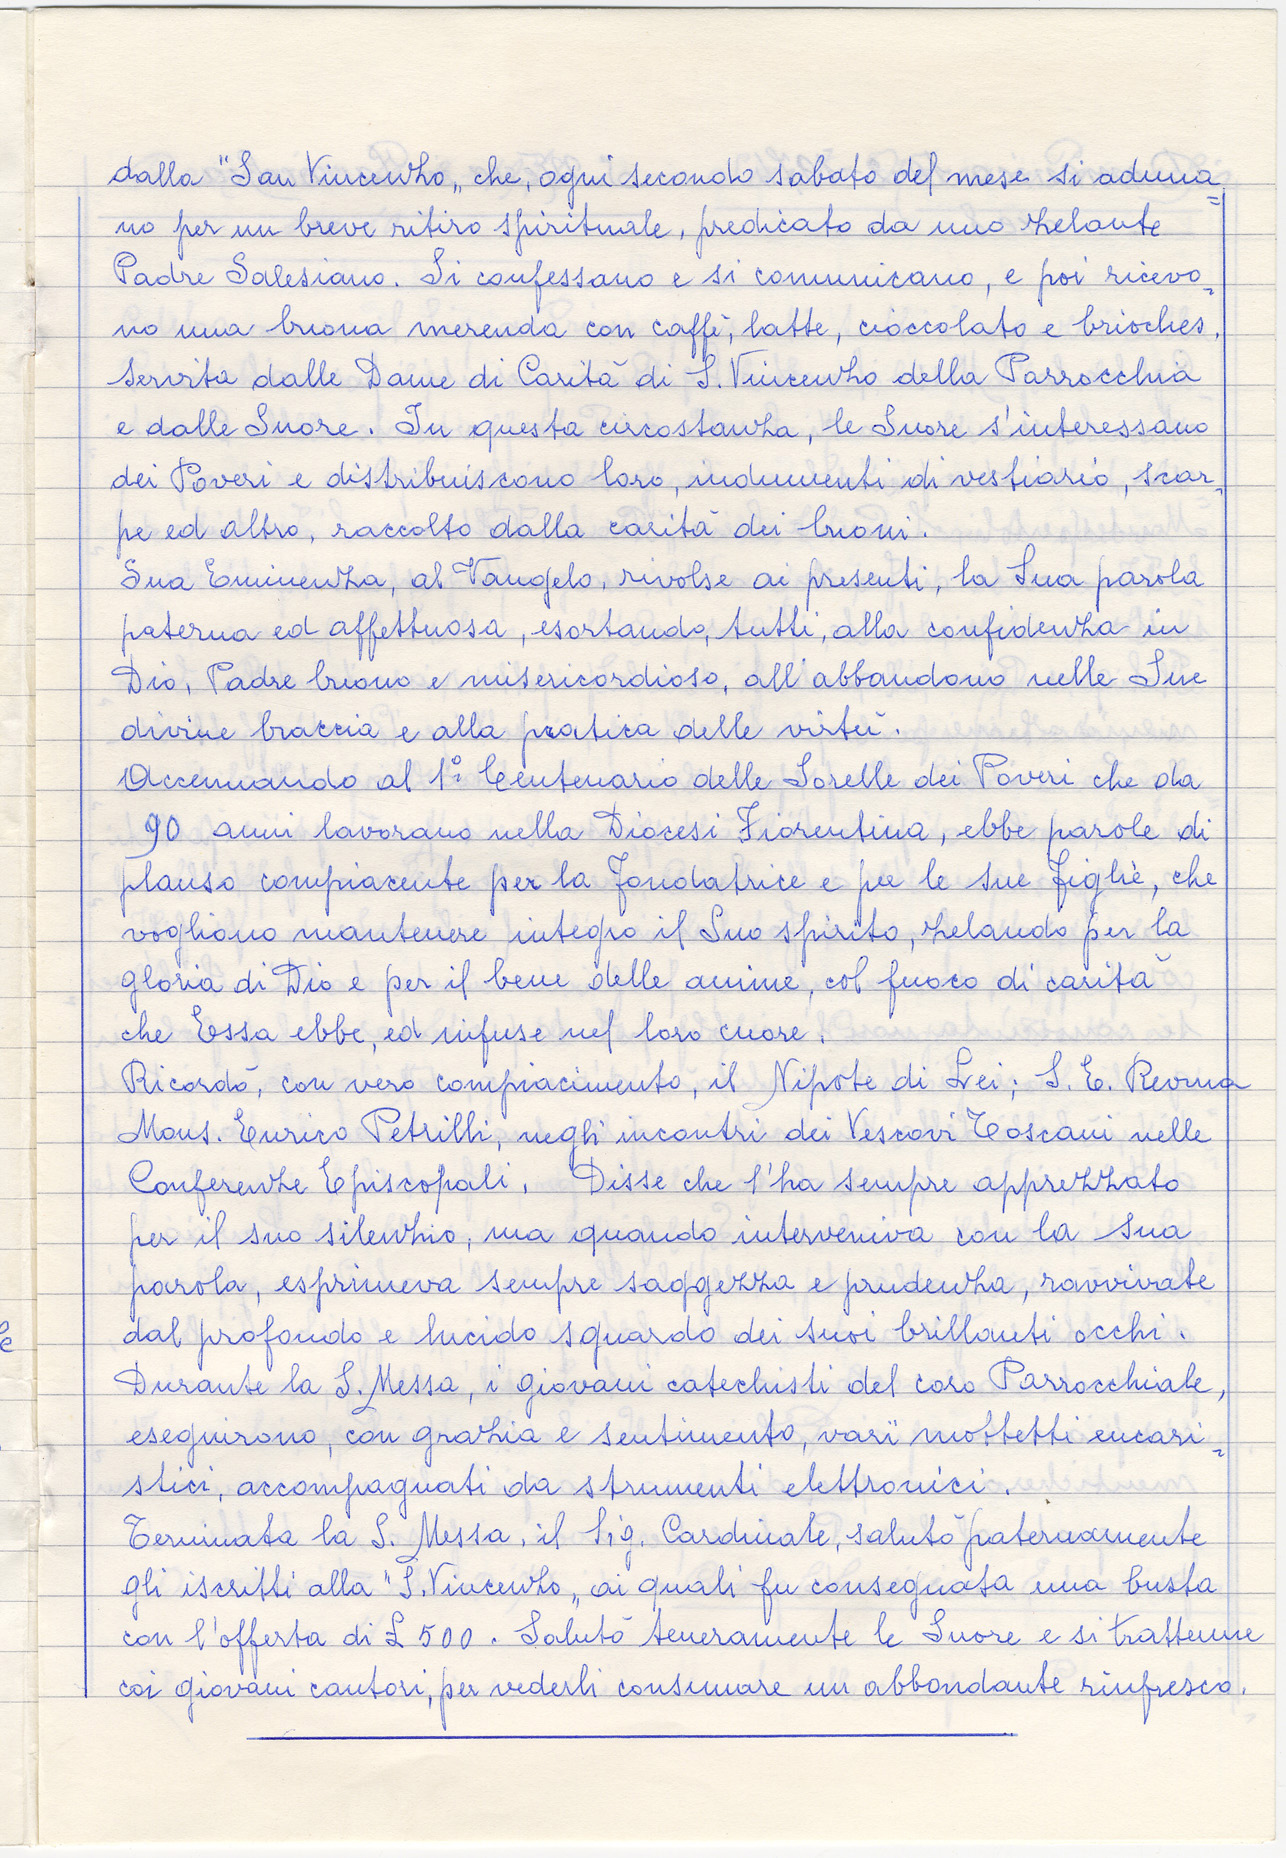 dalla "San Vincenzo„ che, ogni secondo sabato del mese si aduna=
no per un breve ritiro spirituale, predicato da uno zelante
Padre Salesiano. Si confessano e si comunicano, e poi ricevo=
no una buona merenda con caffè, latte, cioccolato e brioches,
servita dalle Dame di Carità di S. Vincenzo della Parrocchia
e dalle Suore. In questa circostanza, le Suore s'interessano
dei Poveri e distribuiscono loro, indumenti di vestiario, scar=
pe ed altro, raccolto dalla carità dei buoni.
Sua Eminenza, al Vangelo, rivolse ai presenti, la Sua parola
paterna ed affettuosa, esortando, tutti, alla confidenza in
Dio, Padre buono e misericordioso, all'abbandono nelle Sue
divine braccia e alla pratica delle virtù.
Accennando al 1° Centenario delle Sorelle dei Poveri che da
90 anni lavorano nella Diocesi Fiorentina, ebbe parole di
plauso compiacente per la Fondatrice e per le sue Figlie, che
vogliono mantenere integro il Suo spirito, zelando per la
gloria di Dio e per il bene delle anime, col fuoco di carità
che Essa ebbe, ed infuse nel loro cuore.
Ricordò, con vero compiacimento, il Nipote di Lei; S. E. Revma
Mons. Enrico Petrilli, negli incontri dei Vescovi Toscani nelle
Conferenze Episcopali. Disse che l'ha sempre apprezzato
per il suo silenzio, ma quando interveniva con la sua
parola, esprimeva sempre saggezza e prudenza, ravvivate
dal profondo e lucido sguardo dei suoi brillanti occhi.
Durante la S. Messa, i giovani catechisti del coro Parrocchiale,
eseguirono, con grazia e sentimento, varï mottetti eucari=
stici, accompagnati da strumenti elettronici.
Terminata la S. Messa, il Sig. Cardinale, salutò paternamente
gli iscritti alla "S. Vincenzo„ ai quali fu consegnata una busta
con l'offerta di £ 500. Salutò teneramente le Suore e si trattenne
coi giovani cantori, per vederli consumare un abbondante rinfresco.